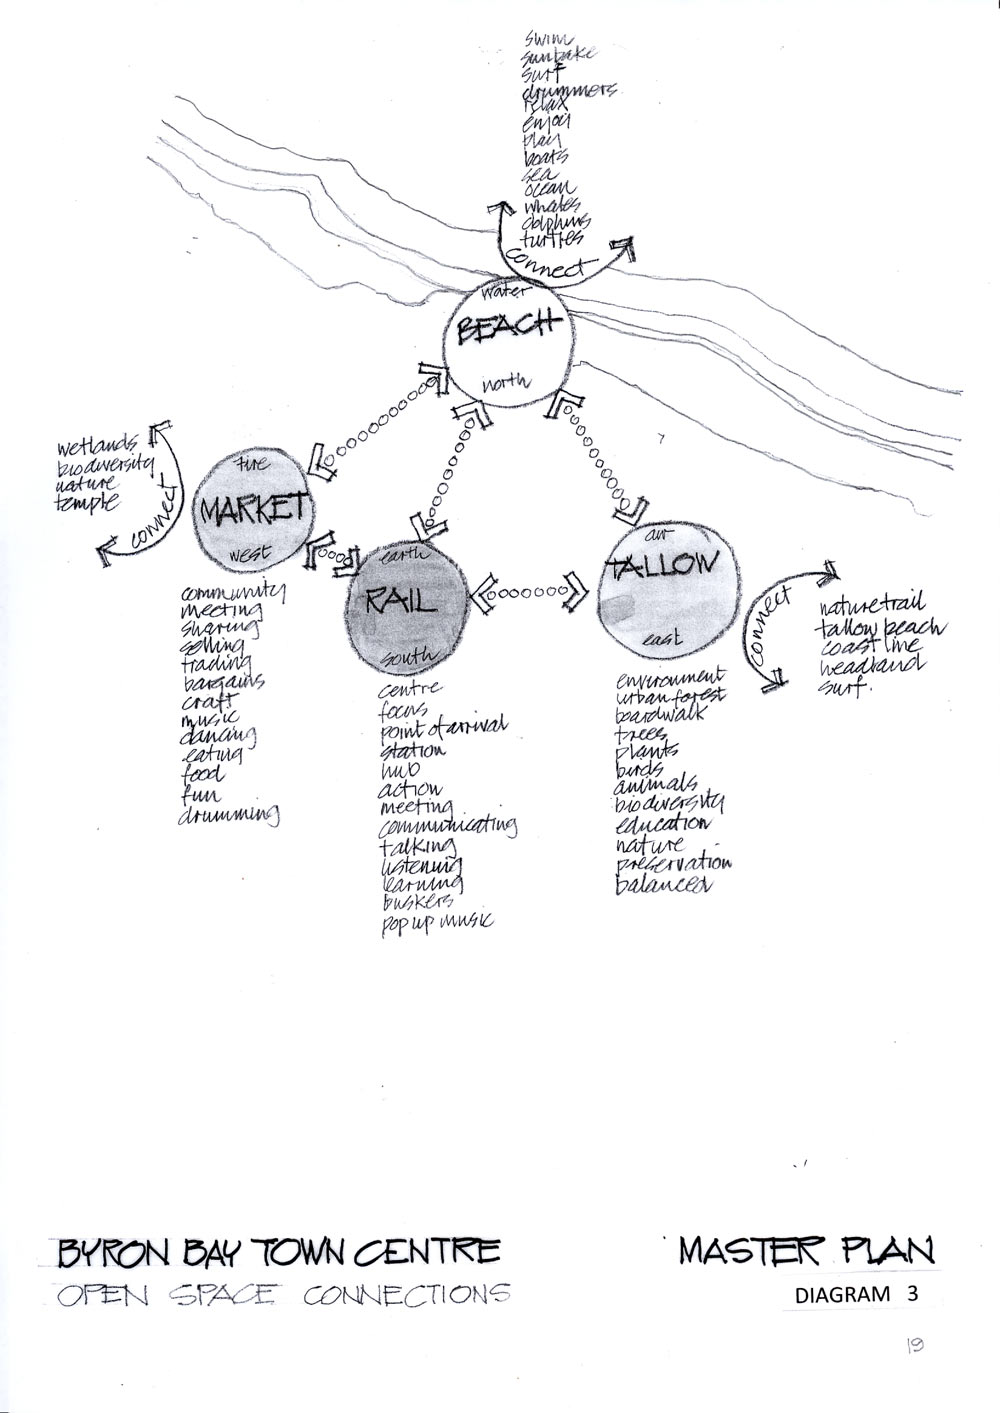 swim
sunbake
surf
drummers
relax
enjoy
play
boats
sea
ocean
whales
dolphins
turtles
connect
water
BEACH
north
wetlands
biodiversity
nature
temple
connect
fire
MARKET
west
community
meeting
sharing
selling
trading
bargains
craft
music
dancing
eating
food
fun
drumming
earth
RAIL
south
centre
focus
point of arrival
station
hub
action
meeting
communicating
talking
listening
learning
buskers
pop up music
air
TALLOW
east
environment
urban forest
boardwalk
trees
plants
birds
animals
biodiversity
education
nature
preservation
balanced
connect
nature trail
tallow beach
coast line
headland
surf.
BYRON BAY TOWN CENTRE
OPEN SPACE CONNECTIONS
MASTER PLAN
DIAGRAM 3
19